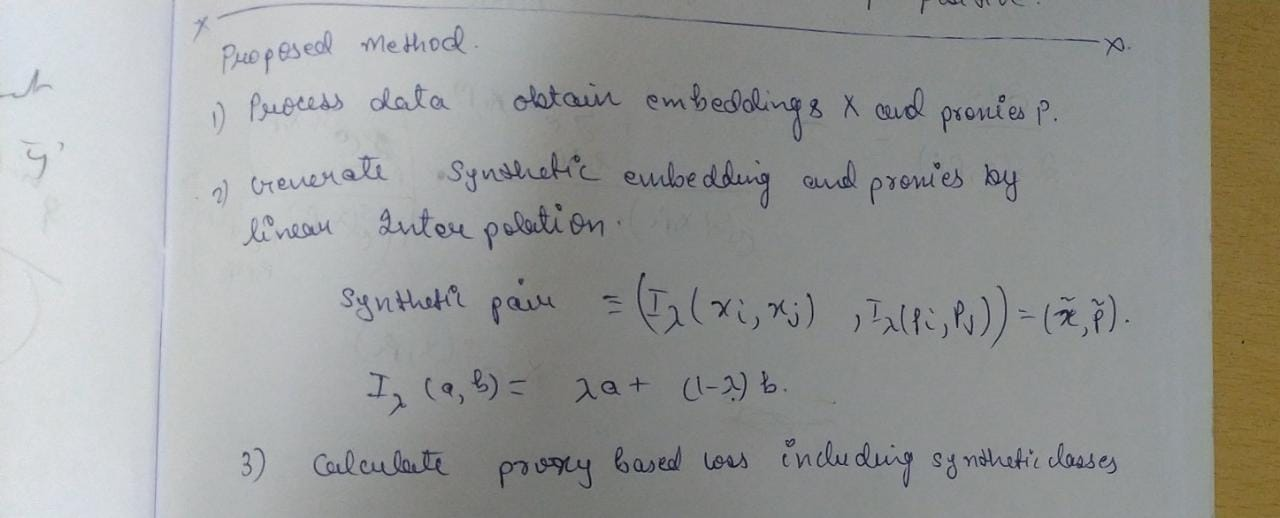 positive.
Proposed method.
1) Process data obtain embeddings X and proxies P.
2) Generate Synthetic embedding and proxies by
linear Interpolation.
Synthetic pair = (I_λ(xi, xj) , I_λ(pi, Pj)) = (x̃, p̃).
I_λ (a, b) = λa + (1-λ) b.
3) Calculate proxy based loss including synthetic classes